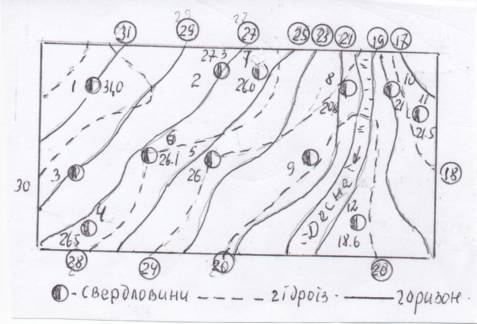 31 29 27 25 23 21 19 17
27.3
1 31.0 2 26.0 8 10
11
21.5
6 5
26.1 26 9
3
30 18
4
26.5 Десна 12
18.6
28 24 20 20
-свердловини --- гідроіз — горизон.